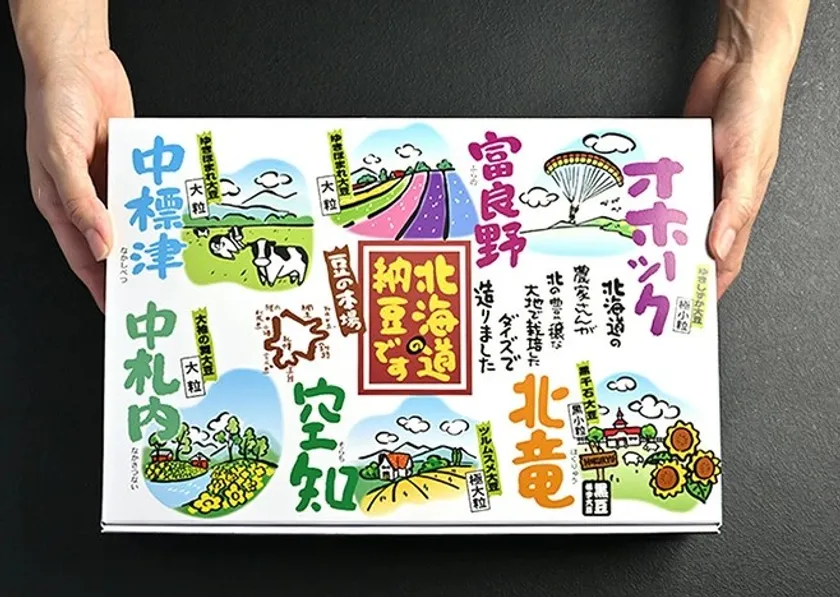 中標津
なかしべつ
ゆきほまれ大豆
大粒
富良野
ふらの
ゆきほまれ大豆
大粒
オホーツク
ゆきしずか大豆
極小粒
豆の本場
北海道の
納豆です
北海道の
農家さんが
北の豊穣な
大地で栽培した
ダイズで
造りました
中札内
なかさつない
大袖の舞大豆
大粒
空知
そらち
ツルムスメ大豆
極大粒
北竜
ほくりゅう
黒千石大豆
黒小粒
黒豆